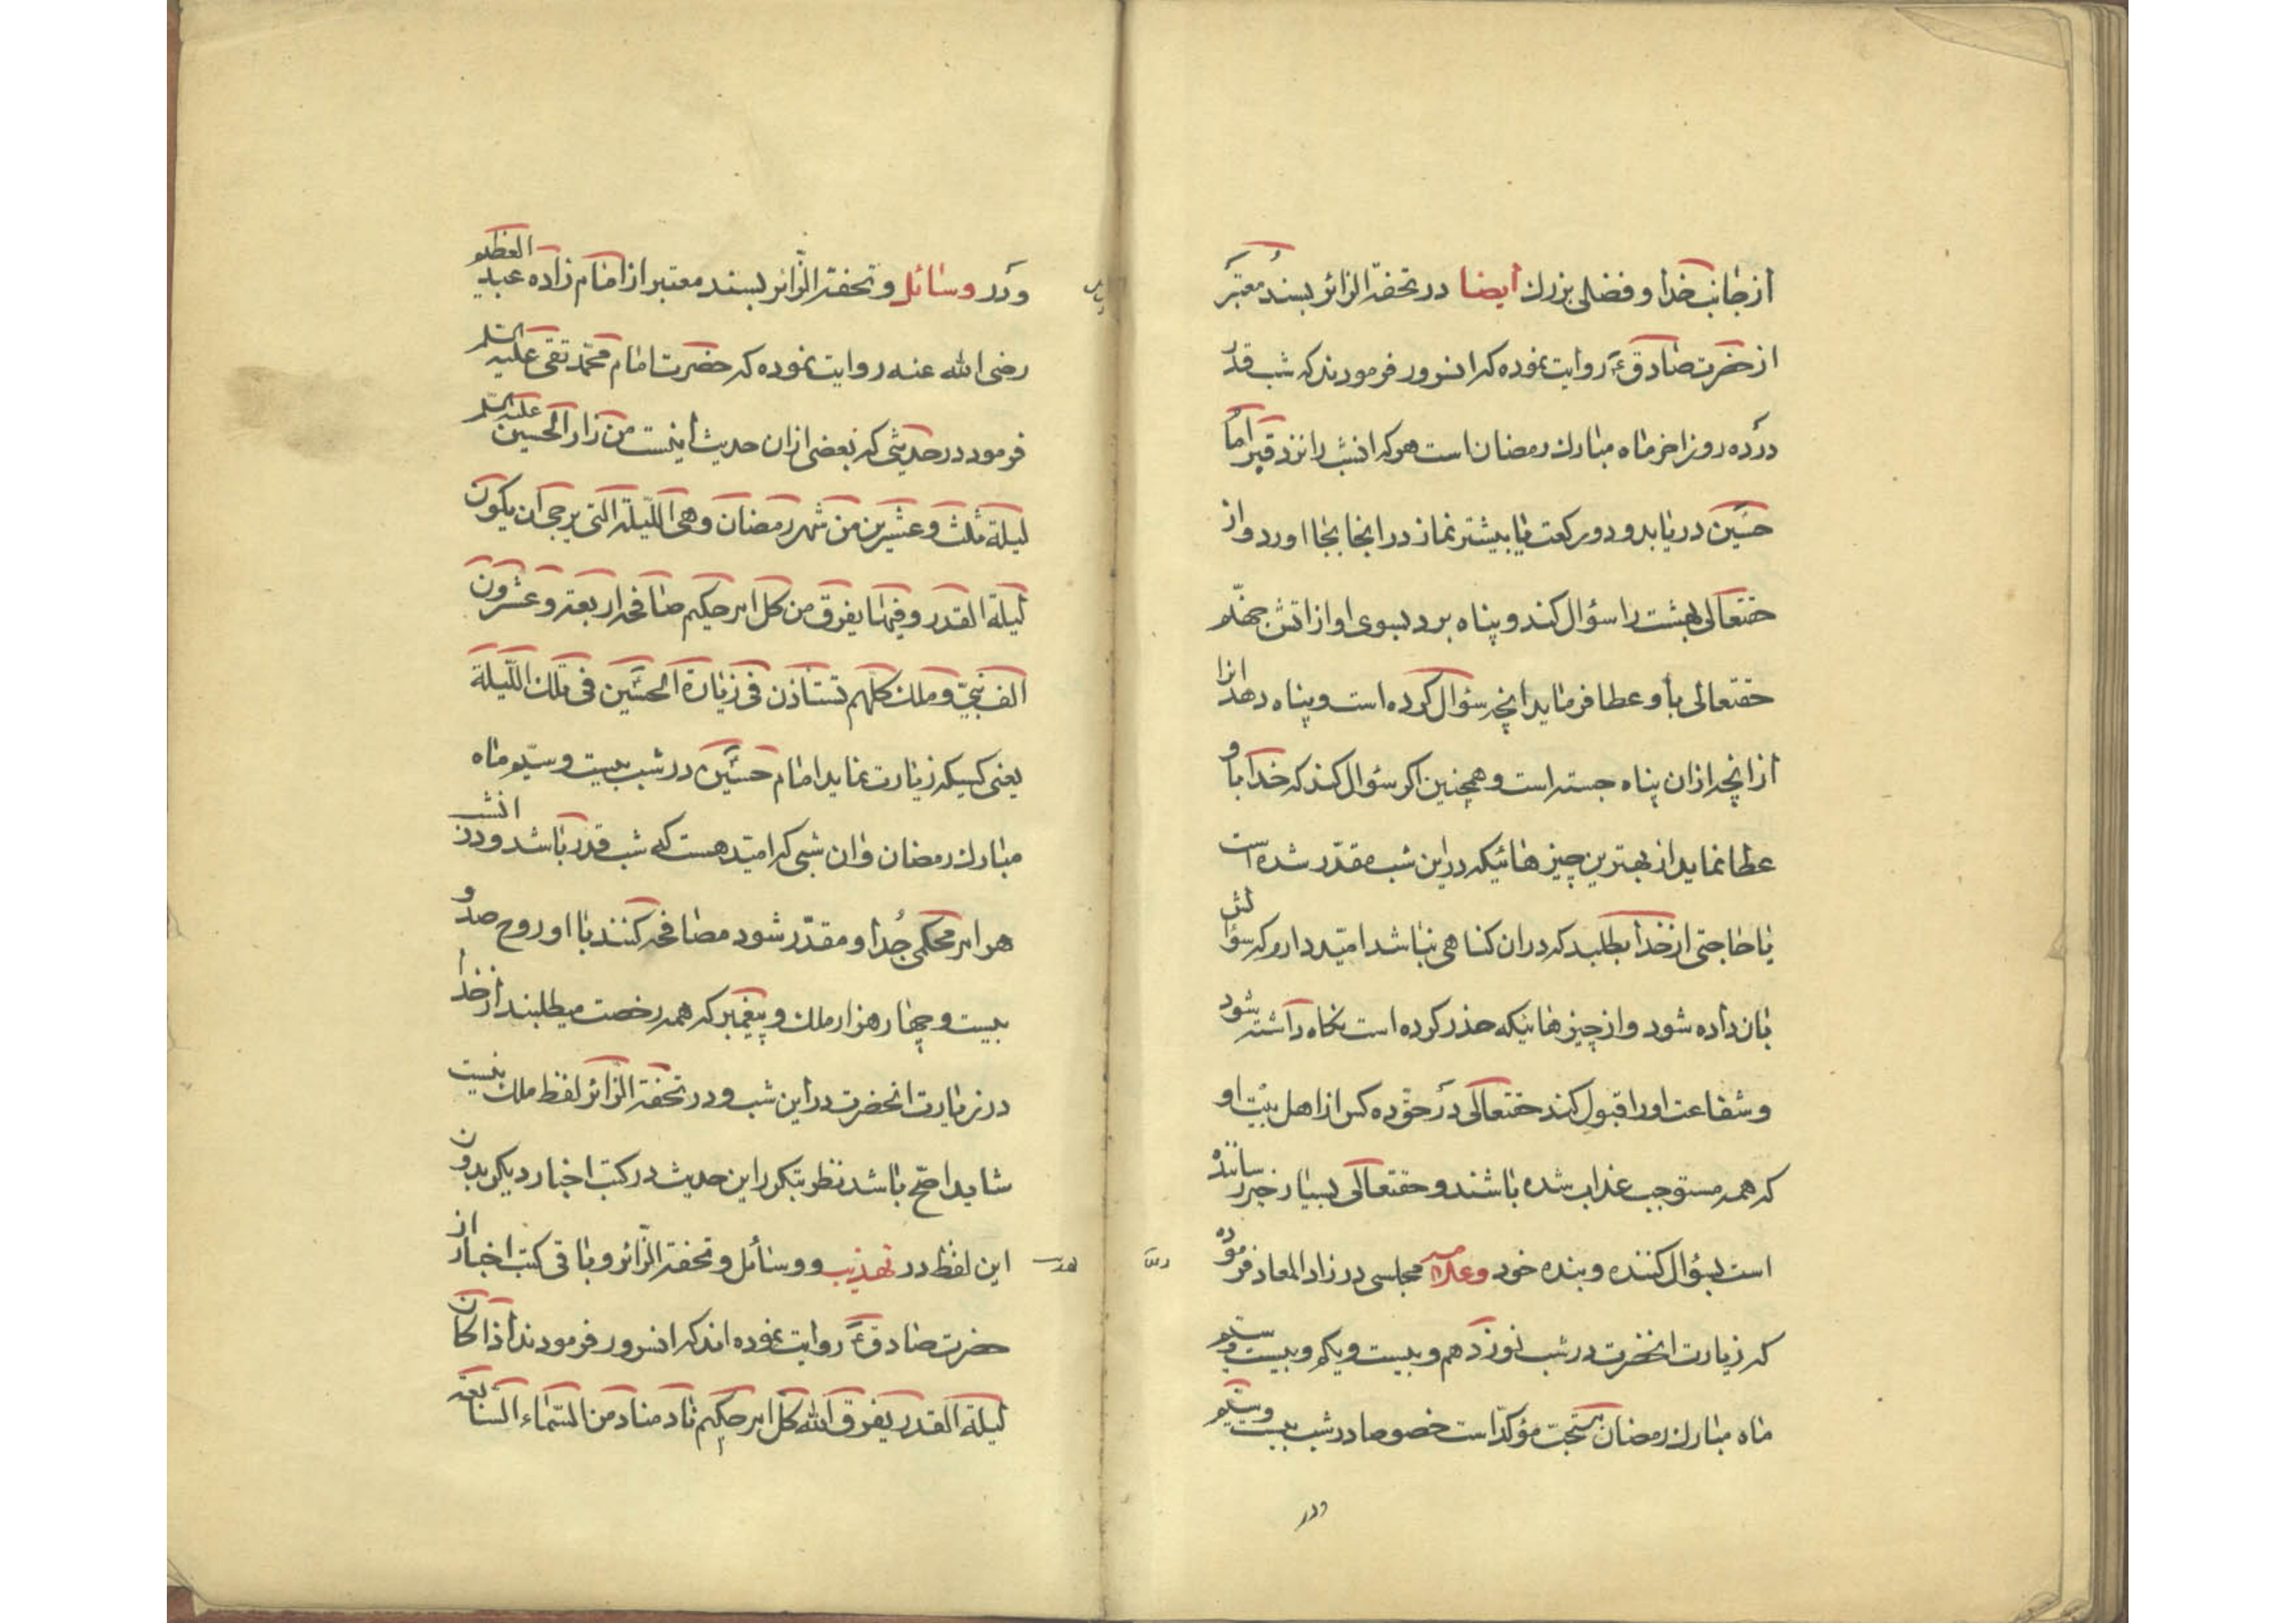 از جانب خدا و فضلی بزرك ایضا در تحفة الزائر بسند معتبر
از حضرت صادق ع روایت نموده که انسرور فرمودند که شب قدر
در ده روز اخر ماه مبارك رمضان است هر که انشب را نزد قبر امام
حسین دریابد و دو رکعت یا بیشتر نماز در انجا بجا اورد و از
حقتعالی بهشت را سؤال کند و پناه برد بسوی او از اتش جهنم
حقتعالی باو عطا فرماید انچه سؤال کرده است و پناه دهد انرا
از انچه از ان پناه جسته است و همچنین اکر سؤال کند که خدا باو
عطا نماید از بهترین چیزهائیکه در این شب مقدّر شده است
یا حاجتی از خدا بطلبد که در ان کناهی نباشد امیّد دارم که سؤالش
بان داده شود و از چیزهائیکه حذر کرده است نکاه داشته شود
و شفاعت او را قبول کند حقتعالی در حقّ ده کس از اهل بیت او
که همه مستوجب عذاب شده باشند و حقتعالی بسیار خیر رساننده
است بسؤال کننده و بنده خود و علامه مجلسی در زاد المعاد فرموده
که زیارت انحضرت در شب نوزدهم و بیست و یکم و بیست و سیّم
ماه مبارك رمضان مستحبّ مؤکدّ است خصوصا در شب بیست و سیّم
ودر
و در وسائل و تحفة الزّائر بسند معتبر از امام زاده عبد العظیم
رضی الله عنه روایت نموده که حضرت امام محمّد تقی علیه السّلم
فرمود در حدیثی که بعضی از ان حدیث اینست من زار الحسین علیه السّلم
لیلة ثلث و عشرین من شهر رمضان و هی اللّیلة التی یرجی ان یکون
لیلة القدر و فیها یفرق من کل امر حکیم صافحه اربعة و عشرون
الف نبیّ و ملك کلهم تستاذن فی زیارة الحسین فی تلك اللّیلة
یعنی کسیکه زیارت نماید امام حسین ع در شب بیست و سیّم ماه
مبارك رمضان و ان شبی که امیّد هست که شب قدر باشد و در انشب
هر امر محکمی جدا و مقدّر شود مصافحه کنند با او روح صد و
بیست و چهار هزار ملك و پیغمبر که همه رخصت میطلبند از خدا
در زیارت انحضرت در این شب و در تحفة الزائر لفظ ملك نیست
شاید اصحّ باشد نظر بتکرر این حدیث در کتب اخبار دیکر بدون
این لفظ در تهذیب و وسائل و تحفة الزّائر و باقی کتب اخبار از
حضرت صادق ع روایت نموده اند که انسرور فرمودند اذا کان
لیلة القدر یفرق الله کل امر حکیم ناد مناد من السّماء السّابعة